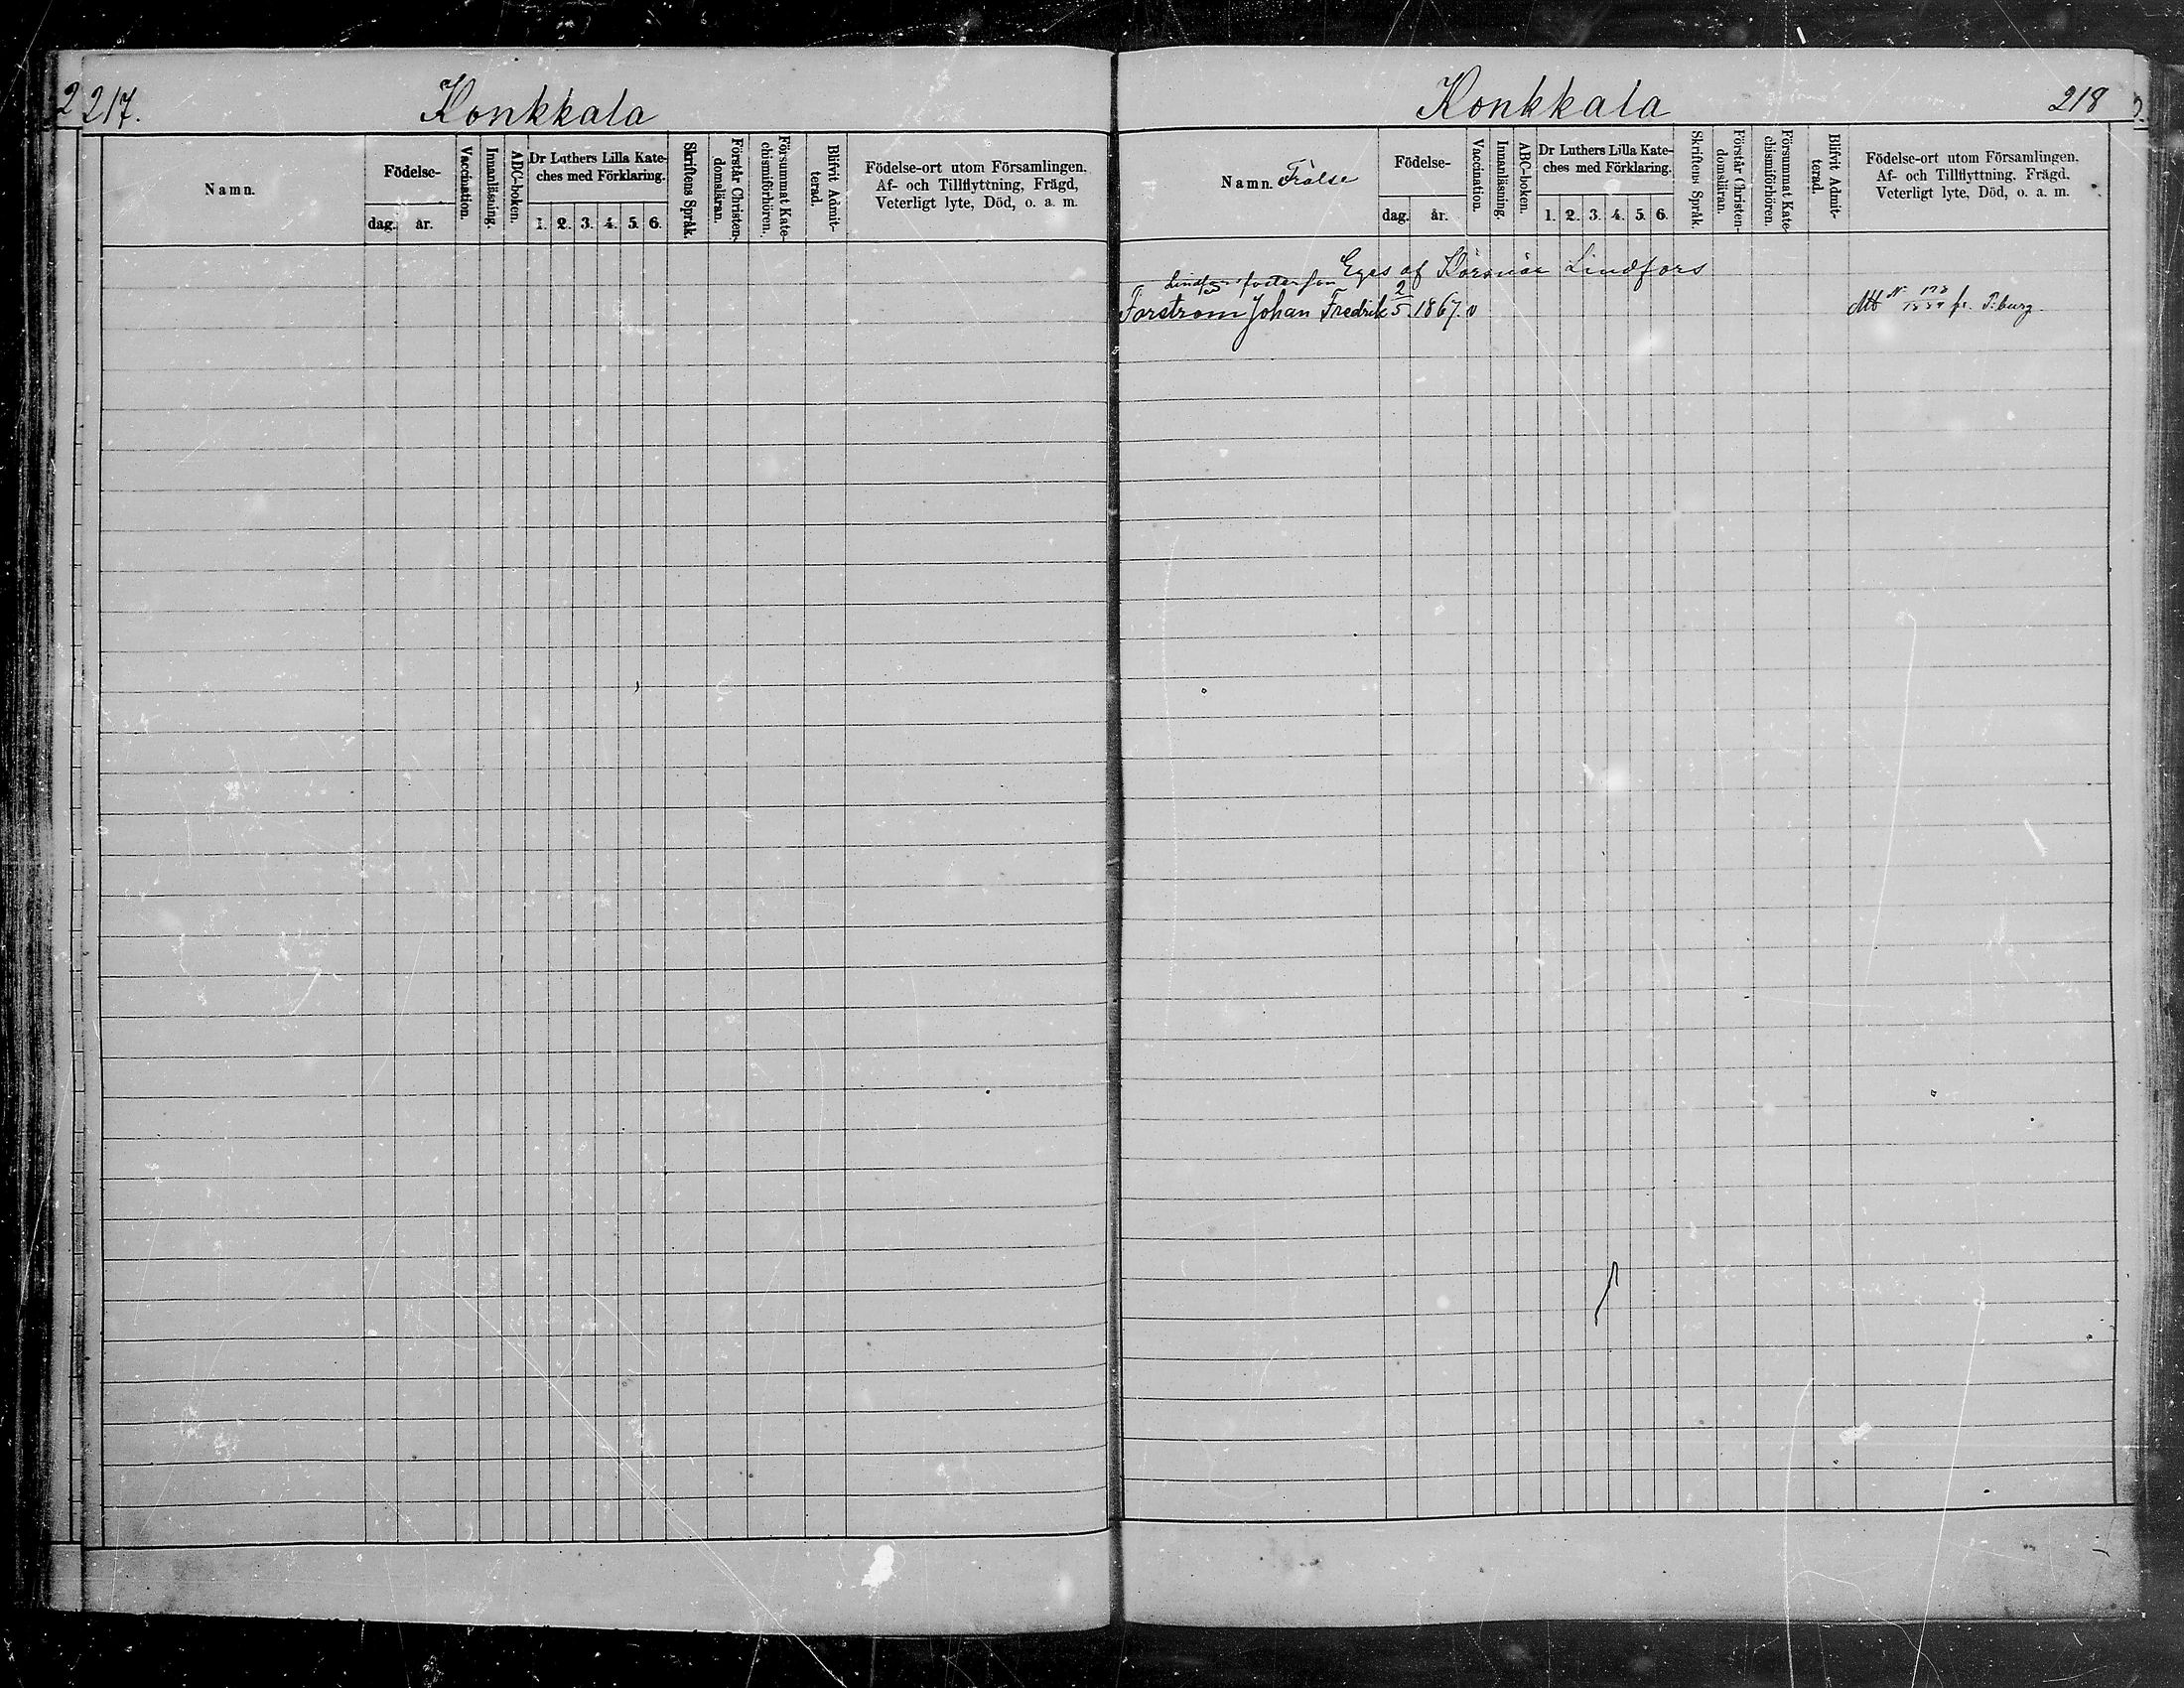 217.
Konkkala
Namn.
Födelse-
dag.
år.
Vaccination.
Innanläsning.
ABC-boken.
Dr Luthers Lilla Kate-
ches med Förklaring.
1. 2. 3. 4. 5. 6.
Skriftens Språk.
Förstår Christen-
domsläran.
Försummat Kate-
chismiförhören.
Blifvit Admit-
terad.
Födelse-ort utom Församlingen.
Af- och Tillflyttning, Frägd,
Veterligt lyte, Död, o. a. m.
Konkkala
218
Namn. Frälse
Födelse-
dag.
år.
Vaccination.
Innanläsning.
ABC-boken.
Dr Luthers Lilla Kate-
ches med Förklaring.
1. 2. 3. 4. 5. 6.
Skriftens Språk.
Förstår Christen-
domsläran.
Försummat Kate-
chismiförhören.
Blifvit Admit-
terad.
Födelse-ort utom Församlingen.
Af- och Tillflyttning. Frägd.
Veterligt lyte, Död, o. a. m.
Eges af Lindfors
fosterson
Forstrom Johan Fredrik 2/5 1867. v
fr. P:burg